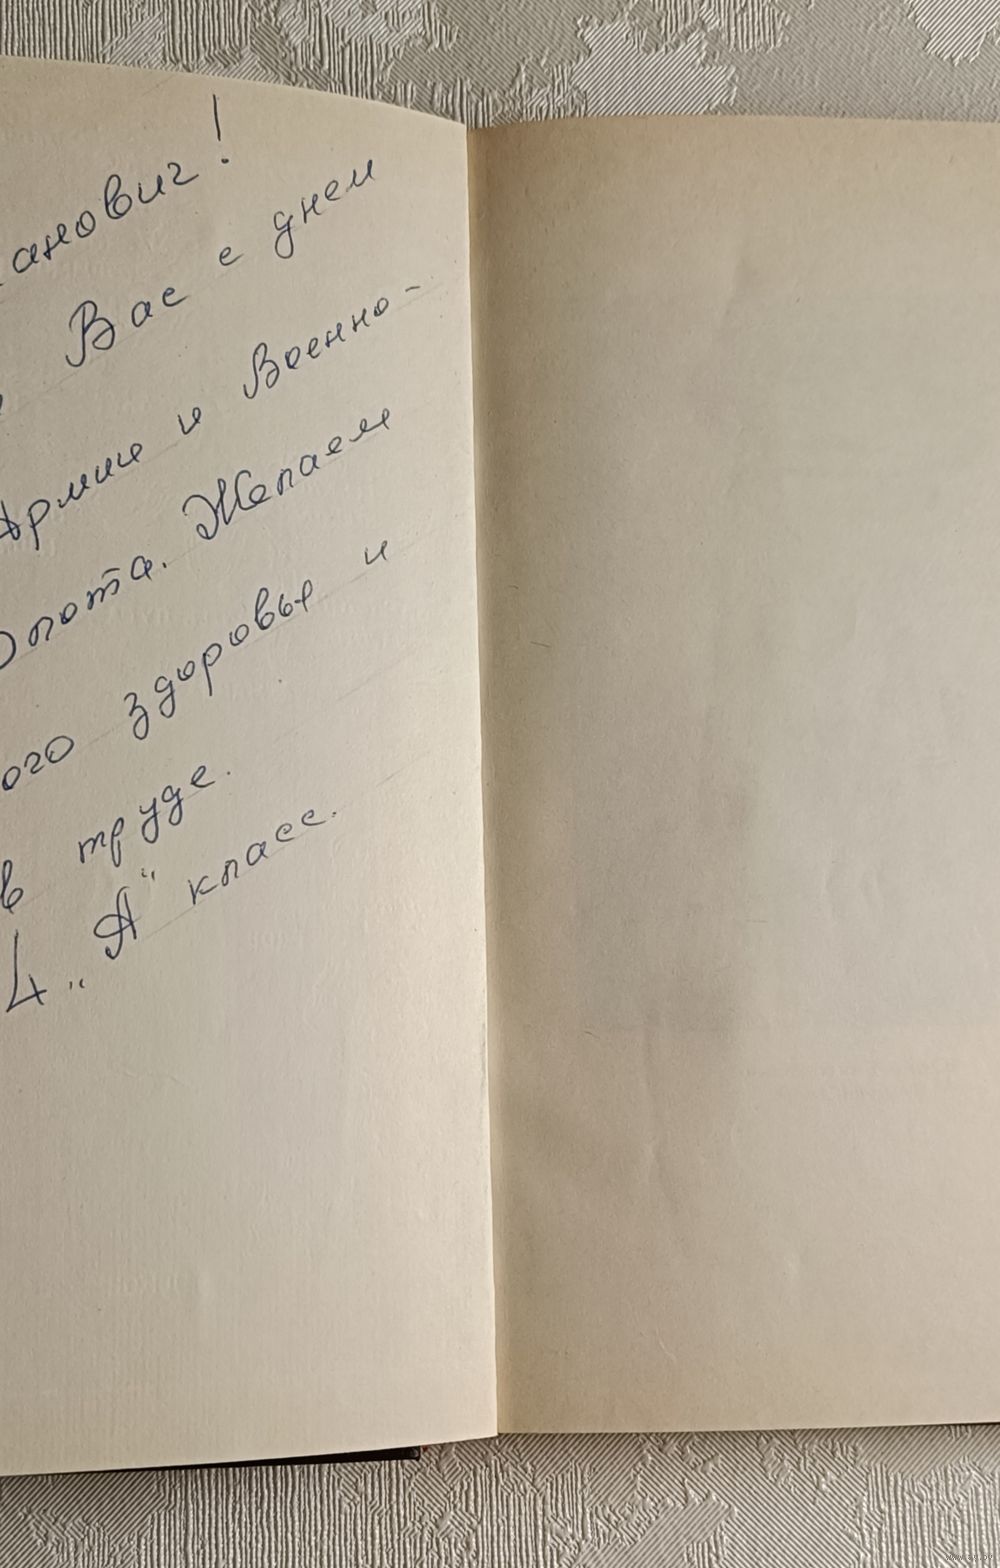 анович!
Вас с днем
Армии и Военно-
Флота. Желаем
ого здоровья и
в труде.
4 „А" класс.